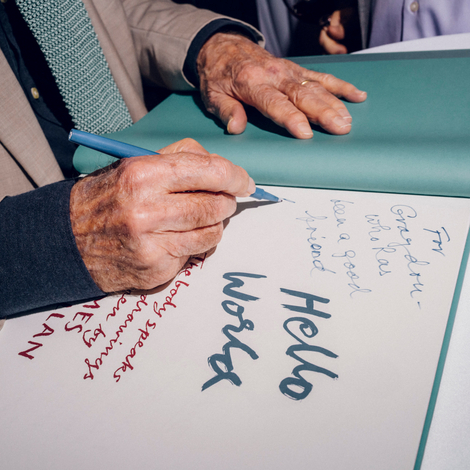 For
Graydon-
who has
been a good
friend
Hello
World
The body speaks
drawings
en by
MES
LAN